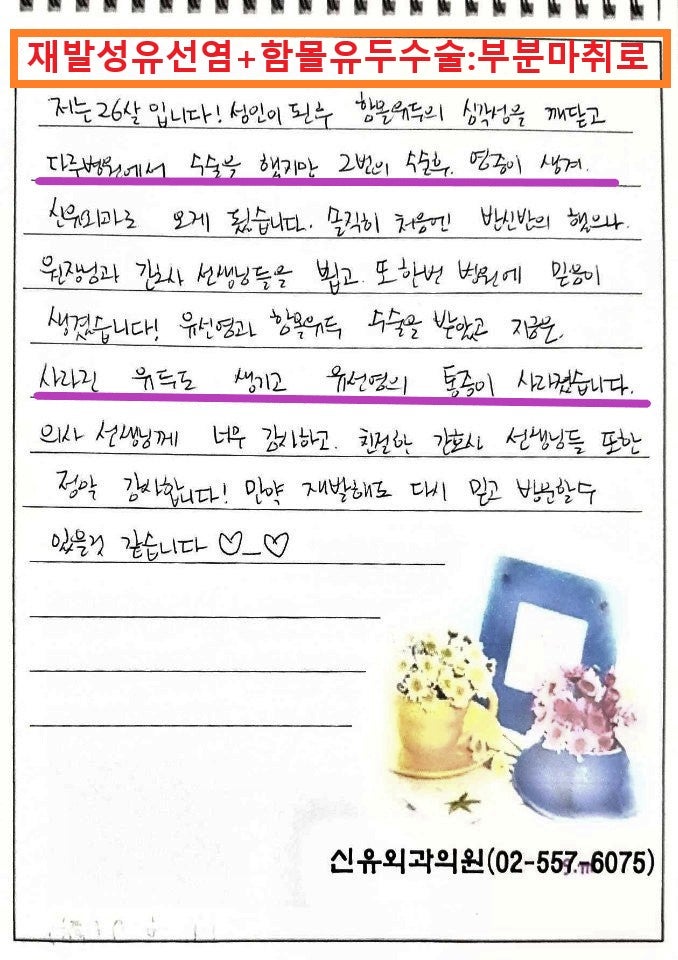 재발성유선염+함몰유두수술:부분마취로
저는 26살 입니다! 성인이 된후 함몰유두의 심각성을 깨닫고
다른병원에서 수술을 했지만 2번의 수술후. 염증이 생겨.
신유외과로 오게 됬습니다. 솔직히 처음엔 반신반의 했으나.
원장님과 간호사 선생님들을 뵙고. 또 한번 병원에 믿음이
생겼습니다! 유선염과 함몰유두 수술을 받았고 지금은.
사라진 유두도 생기고 유선염의 통증이 사라졌습니다.
의사 선생님께 너무 감사하고. 친절한 간호사 선생님들 또한
정말 감사합니다! 만약 재발해도 다시 믿고 방문할수
있을것 같습니다 ♡_♡
신유외과의원(02-557-6075)